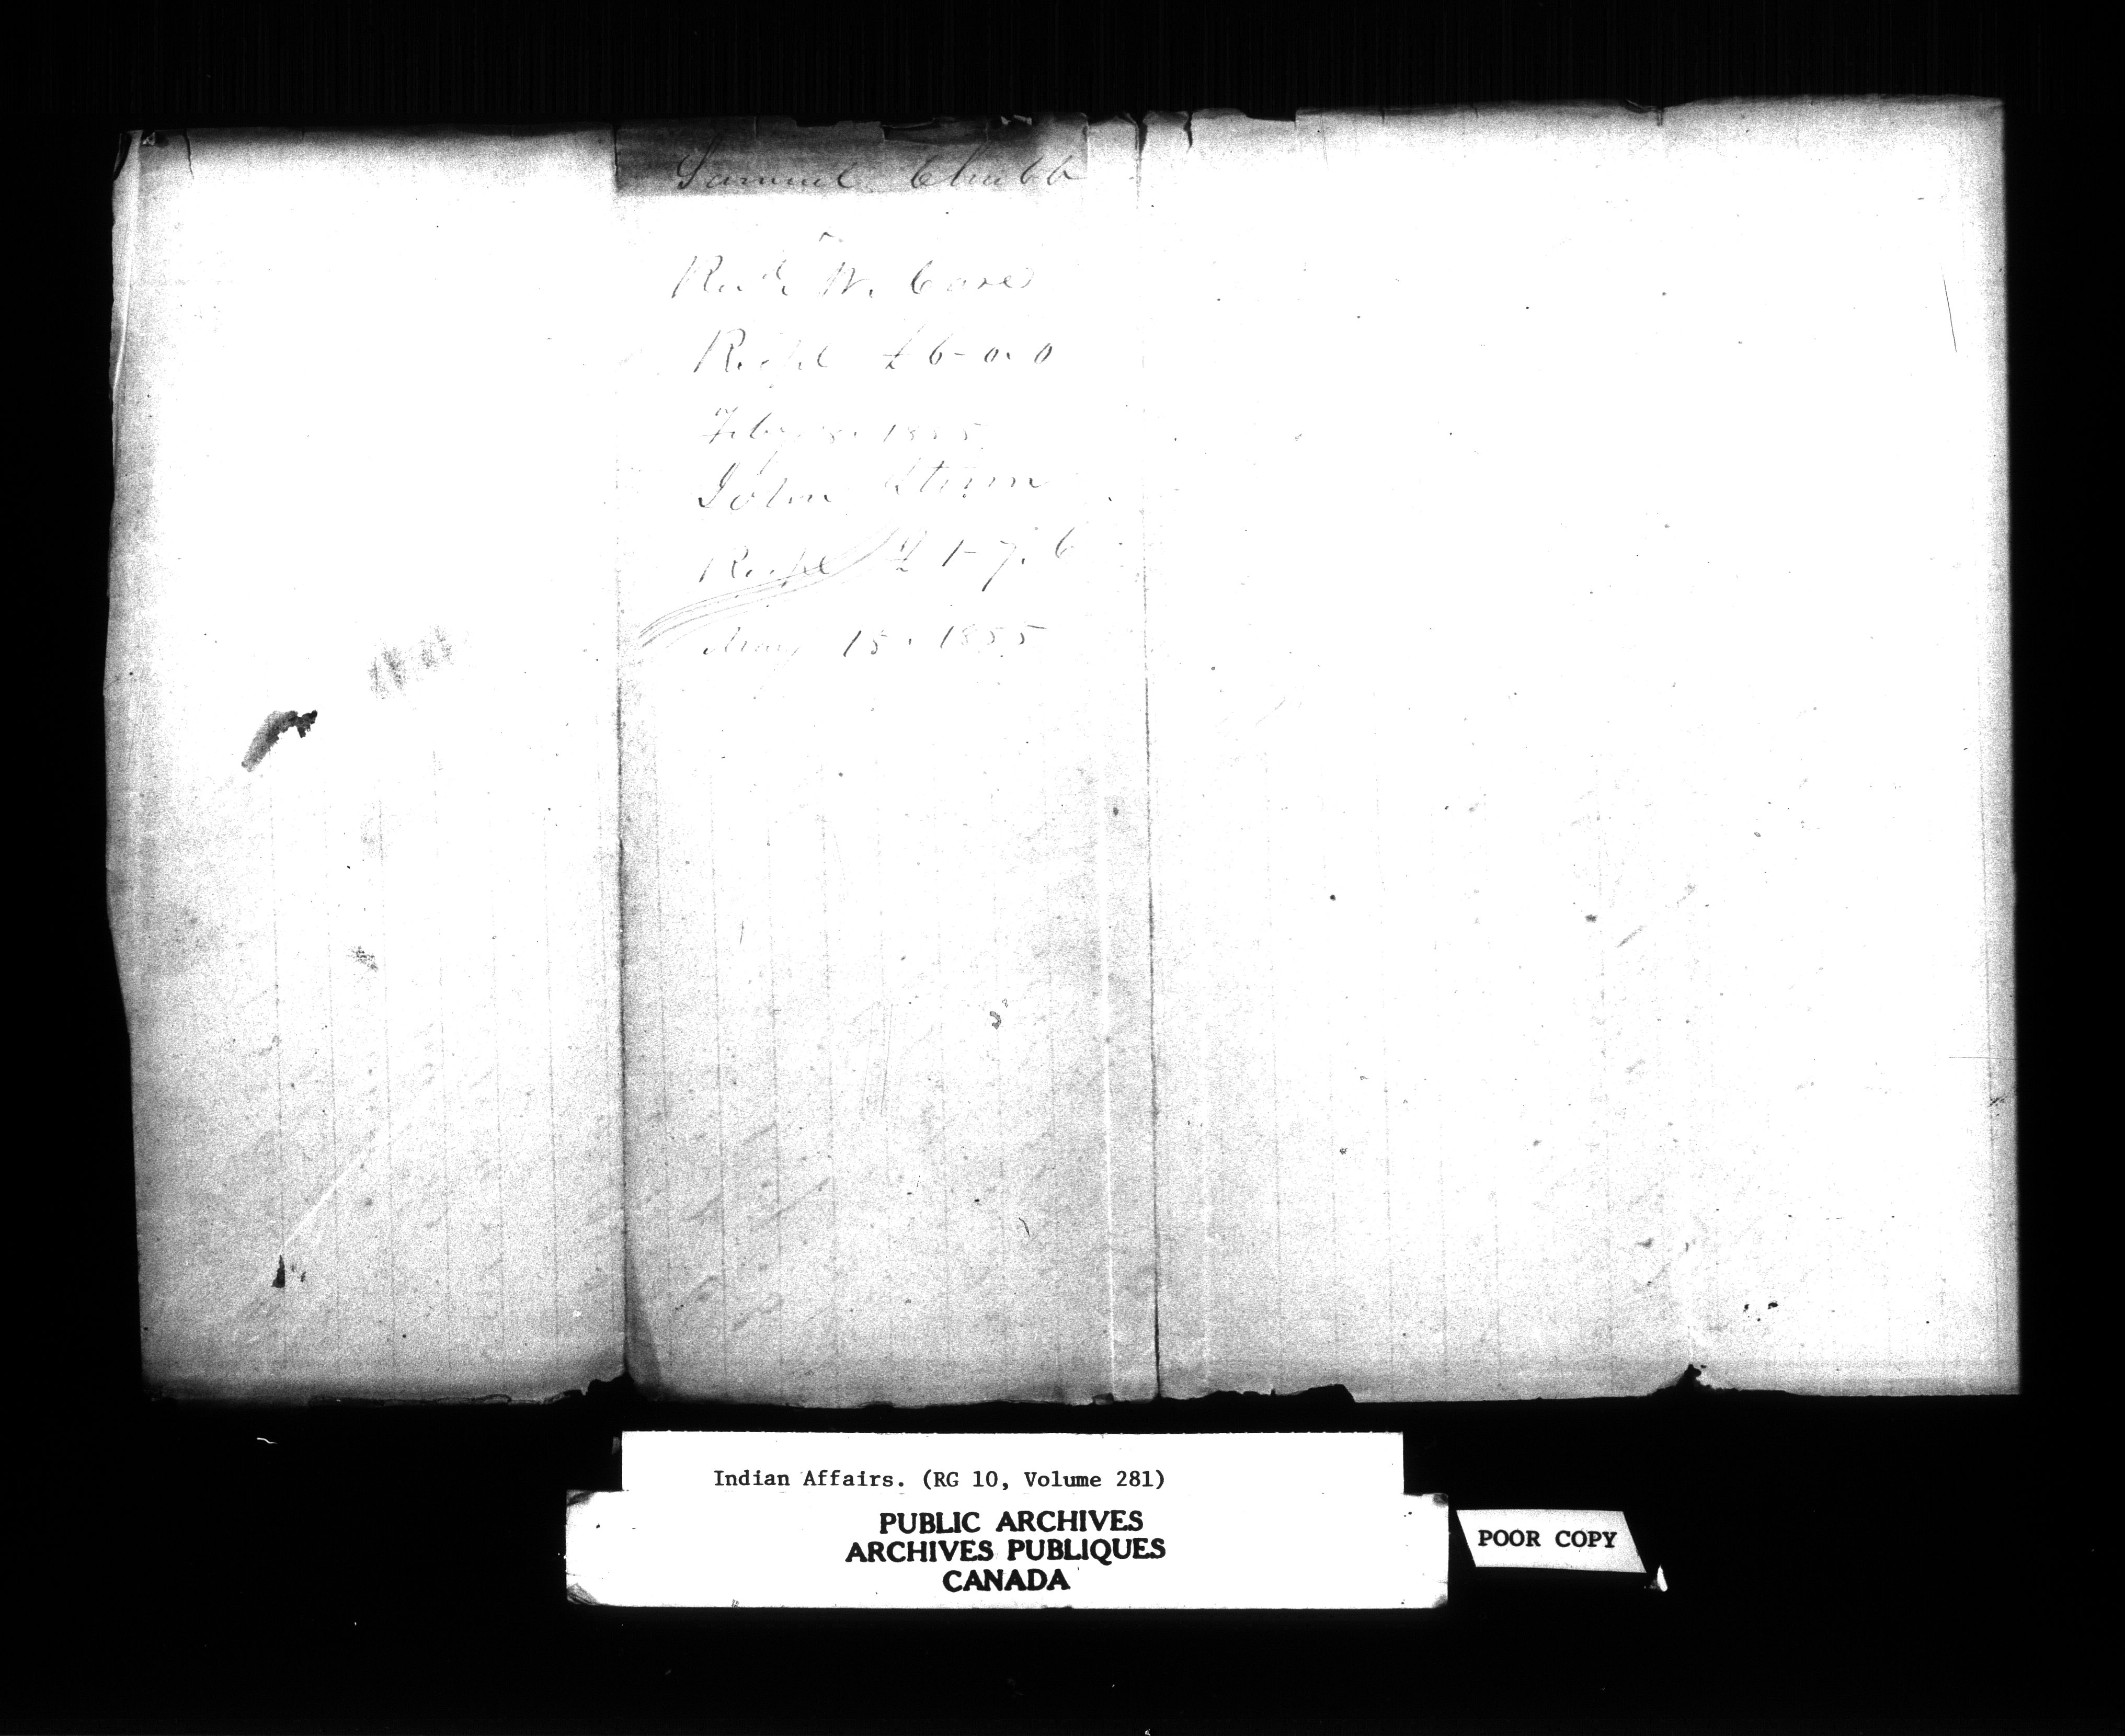 Samuel Chubb
W. Case
Rcpt £6-0.0
Feby 8. 1855
John
Rcpt £1-7.6
May 15. 1855
Indian Affairs. (RG 10, Volume 281)
PUBLIC ARCHIVES
ARCHIVES PUBLIQUES
CANADA
POOR COPY